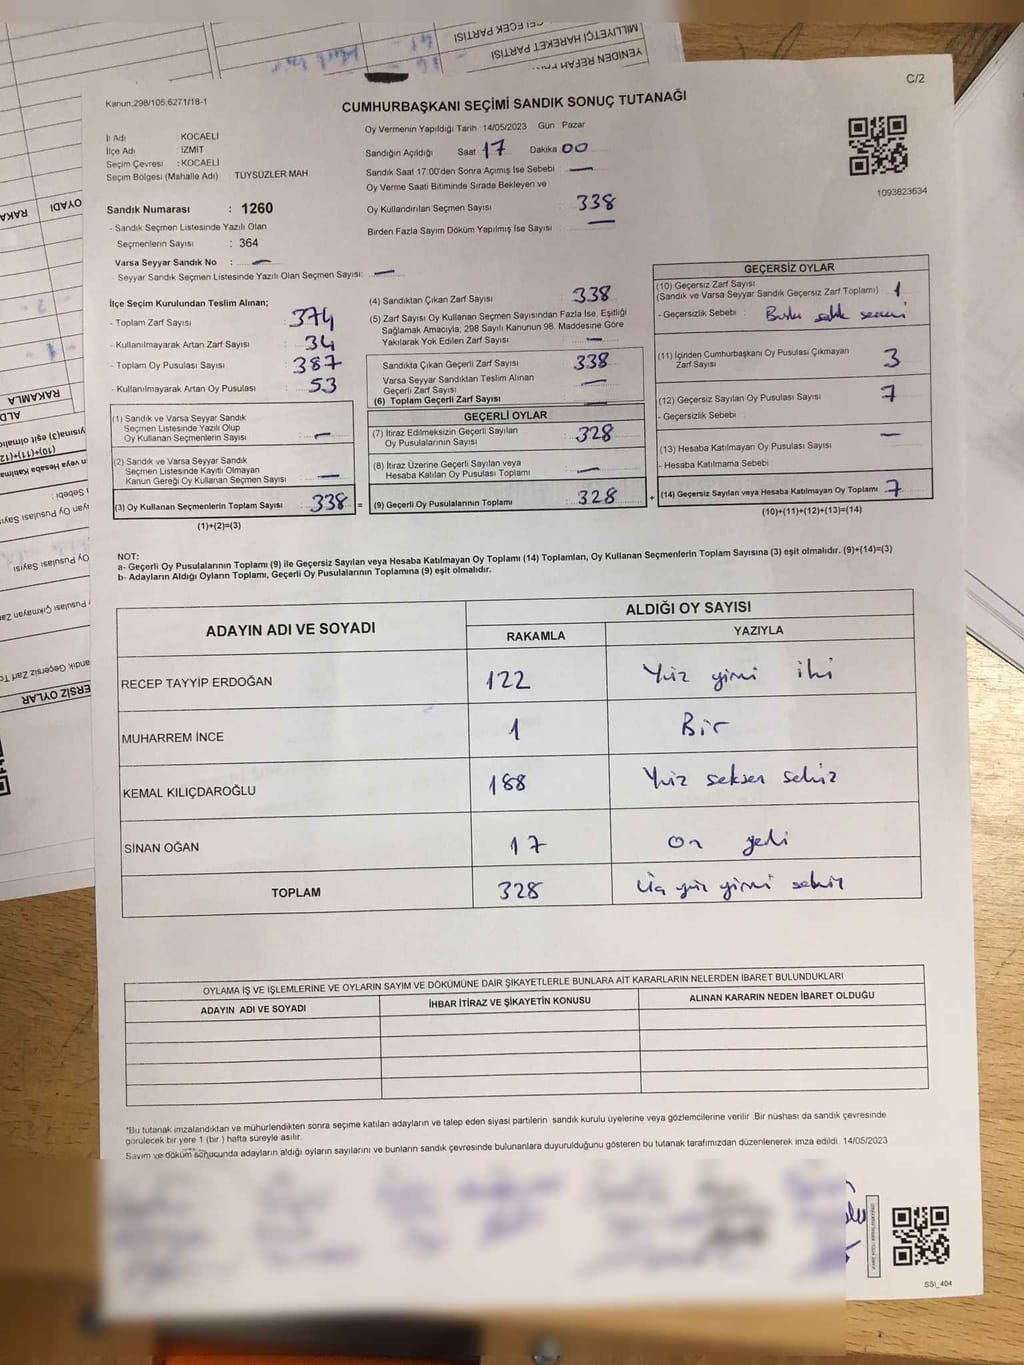 GELECEK PARTİSİ
MİLLİYETÇİ HAREKET PARTİSİ
YENİDEN REFAH
C/2
Kanun:298/105,6271/18-1
CUMHURBAŞKANI SEÇİMİ SANDIK SONUÇ TUTANAĞI
İl Adı : KOCAELİ
İlçe Adı : İZMİT
Seçim Çevresi : KOCAELİ
Seçim Bölgesi (Mahalle Adı) TÜYSÜZLER MAH.
Sandık Numarası : 1260
- Sandık Seçmen Listesinde Yazılı Olan
Seçmenlerin Sayısı : 364
Varsa Seyyar Sandık No : —
- Seyyar Sandık Seçmen Listesinde Yazılı Olan Seçmen Sayısı: —
Oy Vermenin Yapıldığı Tarih 14/05/2023 Gün Pazar
Sandığın Açıldığı Saat 17 Dakika 00
Sandık Saat 17:00'den Sonra Açımış İse Sebebi —
Oy Verme Saati Bitiminde Sırada Bekleyen ve
Oy Kullandırılan Seçmen Sayısı 338
Birden Fazla Sayım Döküm Yapılmış İse Sayısı : —
1093823634
İlçe Seçim Kurulundan Teslim Alınan;
- Toplam Zarf Sayısı : 374
- Kullanılmayarak Artan Zarf Sayısı : 34
- Toplam Oy Pusulası Sayısı : 387
- Kullanılmayarak Artan Oy Pusulası : 53
(1) Sandık ve Varsa Seyyar Sandık
Seçmen Listesinde Yazılı Olup
Oy Kullanan Seçmenlerin Sayısı : —
(2) Sandık ve Varsa Seyyar Sandık
Seçmen Listesinde Kayıtlı Olmayan
Kanun Gereği Oy Kullanan Seçmen Sayısı : —
(3) Oy Kullanan Seçmenlerin Toplam Sayısı : 338 =
(1)+(2)=(3)
(4) Sandıktan Çıkan Zarf Sayısı : 338
(5) Zarf Sayısı Oy Kullanan Seçmen Sayısından Fazla İse, Eşitliği
Sağlamak Amacıyla; 298 Sayılı Kanunun 98. Maddesine Göre
Yakılarak Yok Edilen Zarf Sayısı : —
Sandıkta Çıkan Geçerli Zarf Sayısı : 338
Varsa Seyyar Sandıktan Teslim Alınan
Geçerli Zarf Sayısı : —
(6) Toplam Geçerli Zarf Sayısı : —
GEÇERLİ OYLAR
(7) İtiraz Edilmeksizin Geçerli Sayılan
Oy Pusulalarının Sayısı : 328
(8) İtiraz Üzerine Geçerli Sayılan veya
Hesaba Katılan Oy Pusulası Toplamı : —
(9) Geçerli Oy Pusulalarının Toplamı : 328 +
GEÇERSİZ OYLAR
(10) Geçersiz Zarf Sayısı
(Sandık ve Varsa Seyyar Sandık Geçersiz Zarf Toplamı) : 1
- Geçersizlik Sebebi :
(11) İçinden Cumhurbaşkanı Oy Pusulası Çıkmayan
Zarf Sayısı 3
(12) Geçersiz Sayılan Oy Pusulası Sayısı : 7
- Geçersizlik Sebebi :
(13) Hesaba Katılmayan Oy Pusulası Sayısı : —
- Hesaba Katılmama Sebebi :
(14) Geçersiz Sayılan veya Hesaba Katılmayan Oy Toplamı : 7
(10)+(11)+(12)+(13)=(14)
NOT:
a- Geçerli Oy Pusulalarının Toplamı (9) ile Geçersiz Sayılan veya Hesaba Katılmayan Oy Toplamı (14) Toplamları, Oy Kullanan Seçmenlerin Toplam Sayısına (3) eşit olmalıdır. (9)+(14)=(3)
b- Adayların Aldığı Oyların Toplamı, Geçerli Oy Pusulalarının Toplamına (9) eşit olmalıdır.
ADAYIN ADI VE SOYADI ALDIĞI OY SAYISI
RAKAMLA YAZIYLA
RECEP TAYYİP ERDOĞAN 122 Yüz yirmi iki
MUHARREM İNCE 1 Bir
KEMAL KILIÇDAROĞLU 188 Yüz seksen sekiz
SİNAN OĞAN 17 On yedi
TOPLAM 328 Üç yüz yirmi sekiz
OYLAMA İŞ VE İŞLEMLERİNE VE OYLARIN SAYIM VE DÖKÜMÜNE DAİR ŞİKAYETLERLE BUNLARA AİT KARARLARIN NELERDEN İBARET BULUNDUKLARI
ADAYIN ADI VE SOYADI İHBAR İTİRAZ VE ŞİKAYETİN KONUSU ALINAN KARARIN NEDEN İBARET OLDUĞU
*Bu tutanak imzalandıktan ve mühürlendikten sonra seçime katılan adayların ve talep eden siyasi partilerin sandık kurulu üyelerine veya gözlemcilerine verilir .Bir nüshası da sandık çevresinde
görülecek bir yere 1 (bir ) hafta süreyle asılır.
Sayım ve döküm sonucunda adayların aldığı oyların sayılarını ve bunların sandık çevresinde bulunanlara duyurulduğunu gösteren bu tutanak tarafımızdan düzenlenerek imza edildi. 14/05/2023
SSİ_404